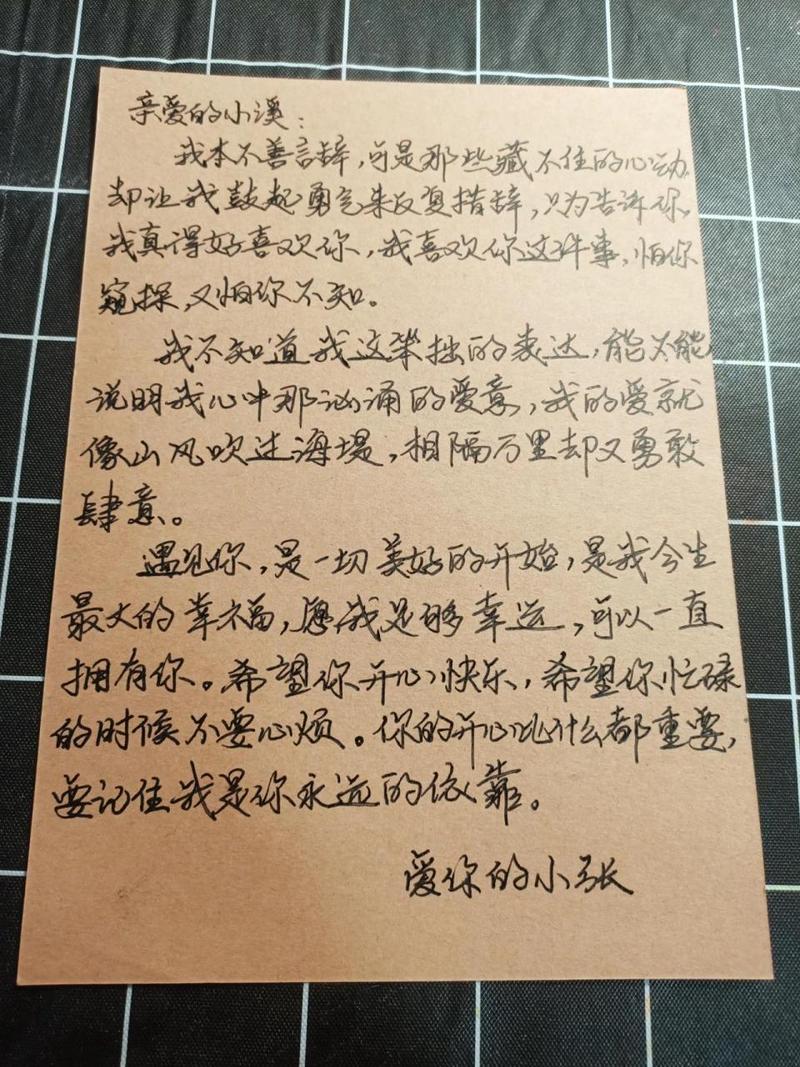 亲爱的小溪：
我本不善言辞，可是那些藏不住的心动
却让我鼓起勇气来反复措辞，只为告诉你，
我真得好喜欢你，我喜欢你这件事，怕你
窥探，又怕你不知。
我不知道我这笨拙的表达，能不能
说明我心中那汹涌的爱意，我的爱就
像山风吹过海堤，相隔万里却又勇敢
肆意。
遇见你，是一切美好的开始，是我今生
最大的幸福，愿我足够幸运，可以一直
拥有你。希望你开心快乐，希望你忙碌
的时候不要心烦。你的开心比什么都重要，
要记住我是你永远的依靠。
爱你的小张